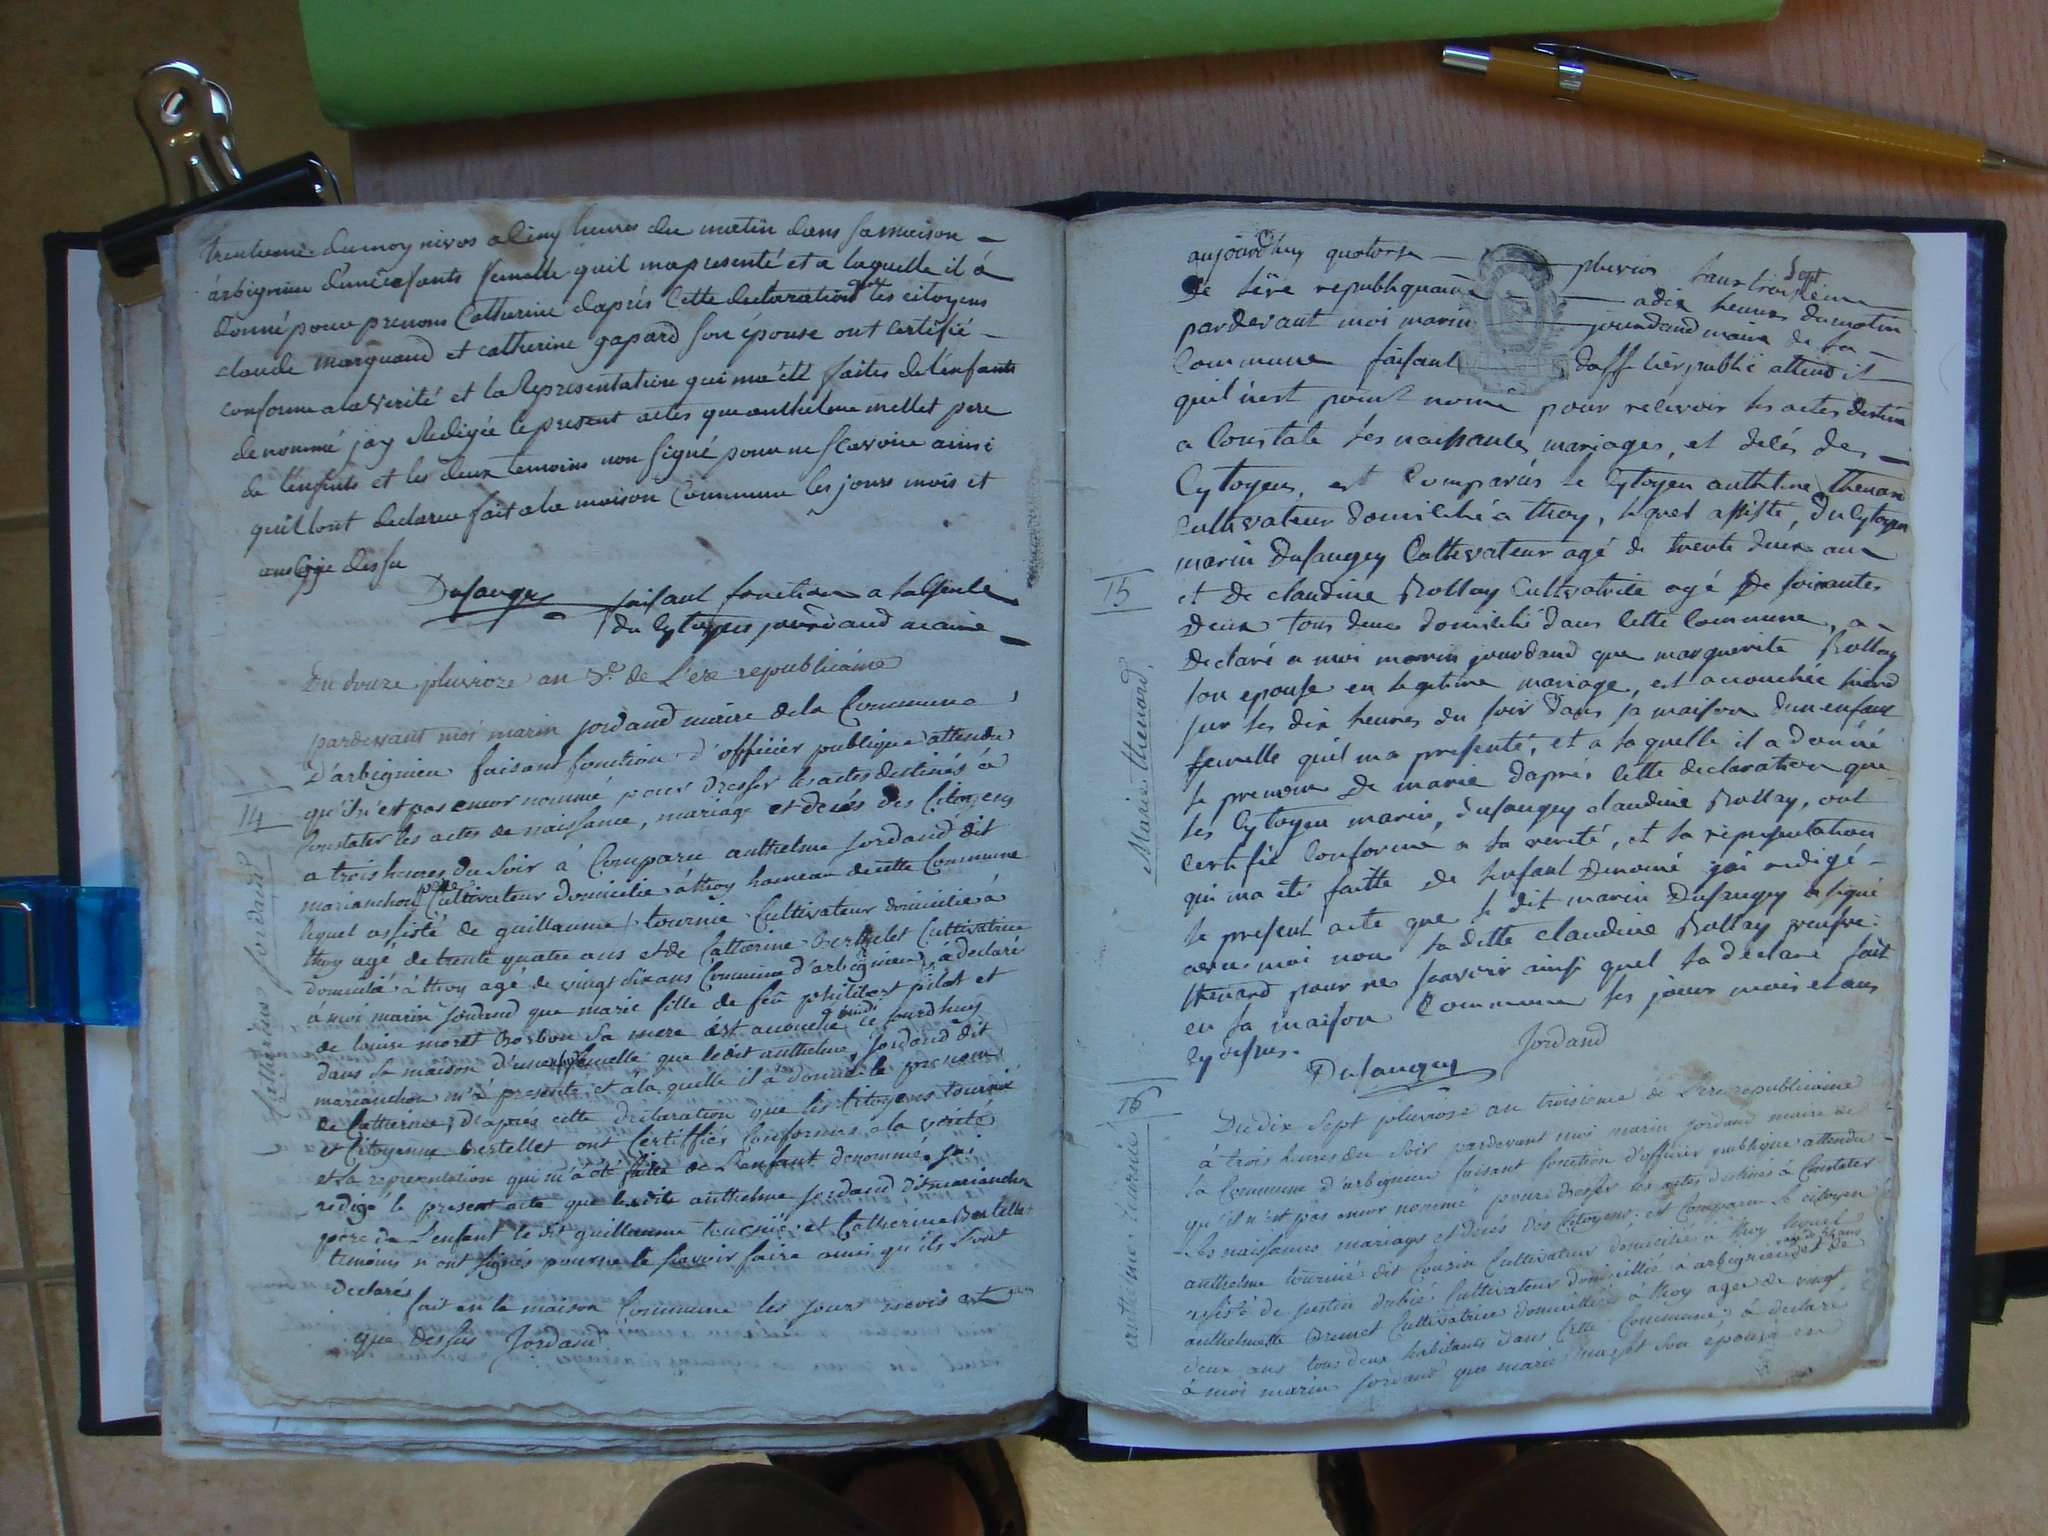 trentieme du moy nivos a cinq heures du matin dans sa maison
arbignieu d'un enfants femelle quil ma presenté et a laquelle il à
donné pour prenom Catherine d'aprés cette declaration que les citoyens
claude marquand et catherine gapard son épouse ont certifié
conforme a la verité et la Representation qui ma été faites de l'enfants
denommé jay Redigée le present actes que anthelme mellet pere
de l'enfants et les deux temoins non signé pour ne scavoire ainsi
quil lont declaree fait a la maison Commune les jours mois et
an que dessu
Dusaugey faisant fonction a labsence
du Cytoyen jourdand maire
Du douze pluvioze an 3e. de L'ere republicaine
pardevant moi marin jordand maire de la Commune
D'arbignieu faisant fonction d'officier publique attendu
qu'il n'est pas encor nommé pour dresser les actes destinés à
Constater les actes de naissance, mariage et decés des Citoyens
a trois heures du soir à Comparu anthelme Jordand dit
marianchon Cultivateur domicilié à thoy hameau de cette Commune
lequel assisté de guillaume tournié Cultivateur domicilié à
thoy agé de trente quatre ans et de Catherine Bertelet Cultivatrice
domicilié à thoy agé de vingt six ans Commune d'arbignieu, à declaré
à moi marin Jordand que marie fille de feu philibert pilat et
de louise moret sa mere est accouché ce jourd'huy
dans sa maison d'une femelle que ledit anthelme Jordand dit
marianchon m'à presenté et à la quelle il à donné le prenom
de Catherine, D'aprés cette déclaration que les Citoyens tournié
et Citoyenne Bertellet ont Certiffiés Conformes a la verité
et la representation qui m'à été faite de L'enfant denommé j'ai
redigé le present acte que ledite anthelme Jordand dit marianchon
pere de L'enfant le dit guillaume tournié et Catherine Bertellet
temoins n'ont signés pour ne le scavoir faire ainsi qu'ils l'ont
declarés
fait en la maison Commune les jour mois et an
que dessus Jordand
14
Catherine Jordand
aujourd'huy quatorse pluvios lan troisième
Sept
de lère republiquaine a dix heures du matin
pardevant moi marin jourdand maire de la
Commune faisant d'officier public attend it
quil n'est point nomé pour recevoir les actes destiné
a Constate les naissance, mariages, et décés des
Cytoyens, est Comparus le Cytoyen anthelme thenard
Cultivateur domicilié a thoy, lequel assisté, du Cytoyen
marin Dusaugey Cultivateur agé de trente deux ans
et de claudine Rollay Cultivatrice agé de soixantes
deux tous deux domicilié dans cette Commune, a
declaré a moi marin jourdand que marguerite Rollay
son epouse en legitime mariage, est accouchée hier
sur les dix heures du soir dans sa maison dun enfant
femelle quil ma presenté, et a laquelle il a donné
le prenom de marie daprés cette declaration que
les Cytoyen marin, dusaugey claudine Rollay, ont
certifié Conforme a la verité, et la representation
qui ma été faitte de lenfant denomé jai redigé
le present acte que le dit marin Dusaugey a signé
avec moi non ladite claudine Rollay
thenard pour ne scavoir ainsi quel la déclaré fait
en la maison Commune les jour mois et ans
cy desus.
Dusaugey Jordand
15
Marie thenard
Du dix Sept pluviose an troisieme de L'ere republicaine
à trois heures du soir pardevant moi marin jordand maire de
la Commune d'arbignieu faisant fonction d'officier publique attendu
qu'il n'est pas encor nommé pour dresser les actes destinés à Constater
les naissances mariages et décés des Citoyens. est Comparu le citoyen
anthelme tournié dit Cousin Cultivateur domicilié à thoy lequel
assisté de justin Cultivateur domicillié a arbignieu et de
anthelmette Brunet Cultivatrice domicilliée à thoy agée de vingt
deux ans tous deux habitants dans cette Commune, à declaré
à moi marin Jordand que marie son epouse en
16
anthelme tournié